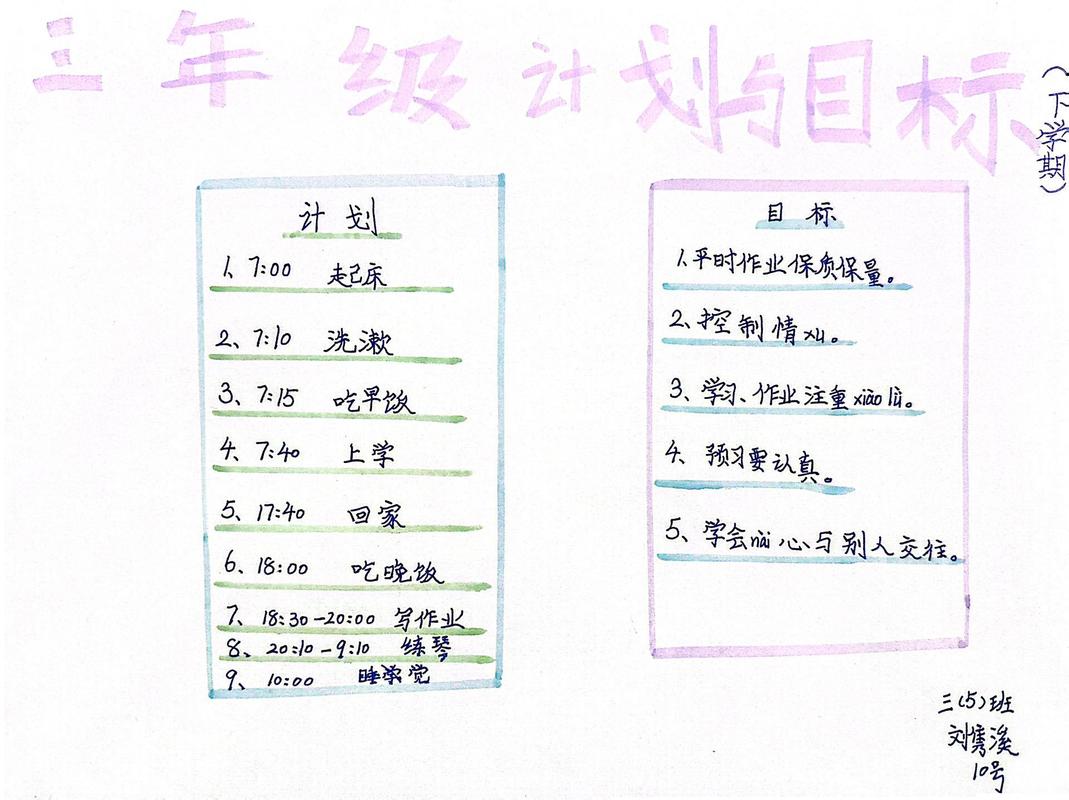 三年级计划与目标
（下学期）
计划
1、7:00 起床
2、7:10 洗漱
3、7:15 吃早饭
4、7:40 上学
5、17:40 回家
6、18:00 吃晚饭
7、18:30-20:00 写作业
8、20:10-9:10 练琴
9、10:00 睡觉
目标
1、平时作业保质保量。
2、控制情xù。
3、学习、作业注重xiào lǜ。
4、预习要认真。
5、学会nài心与别人交往。
三(5)班
刘隽溪
10号